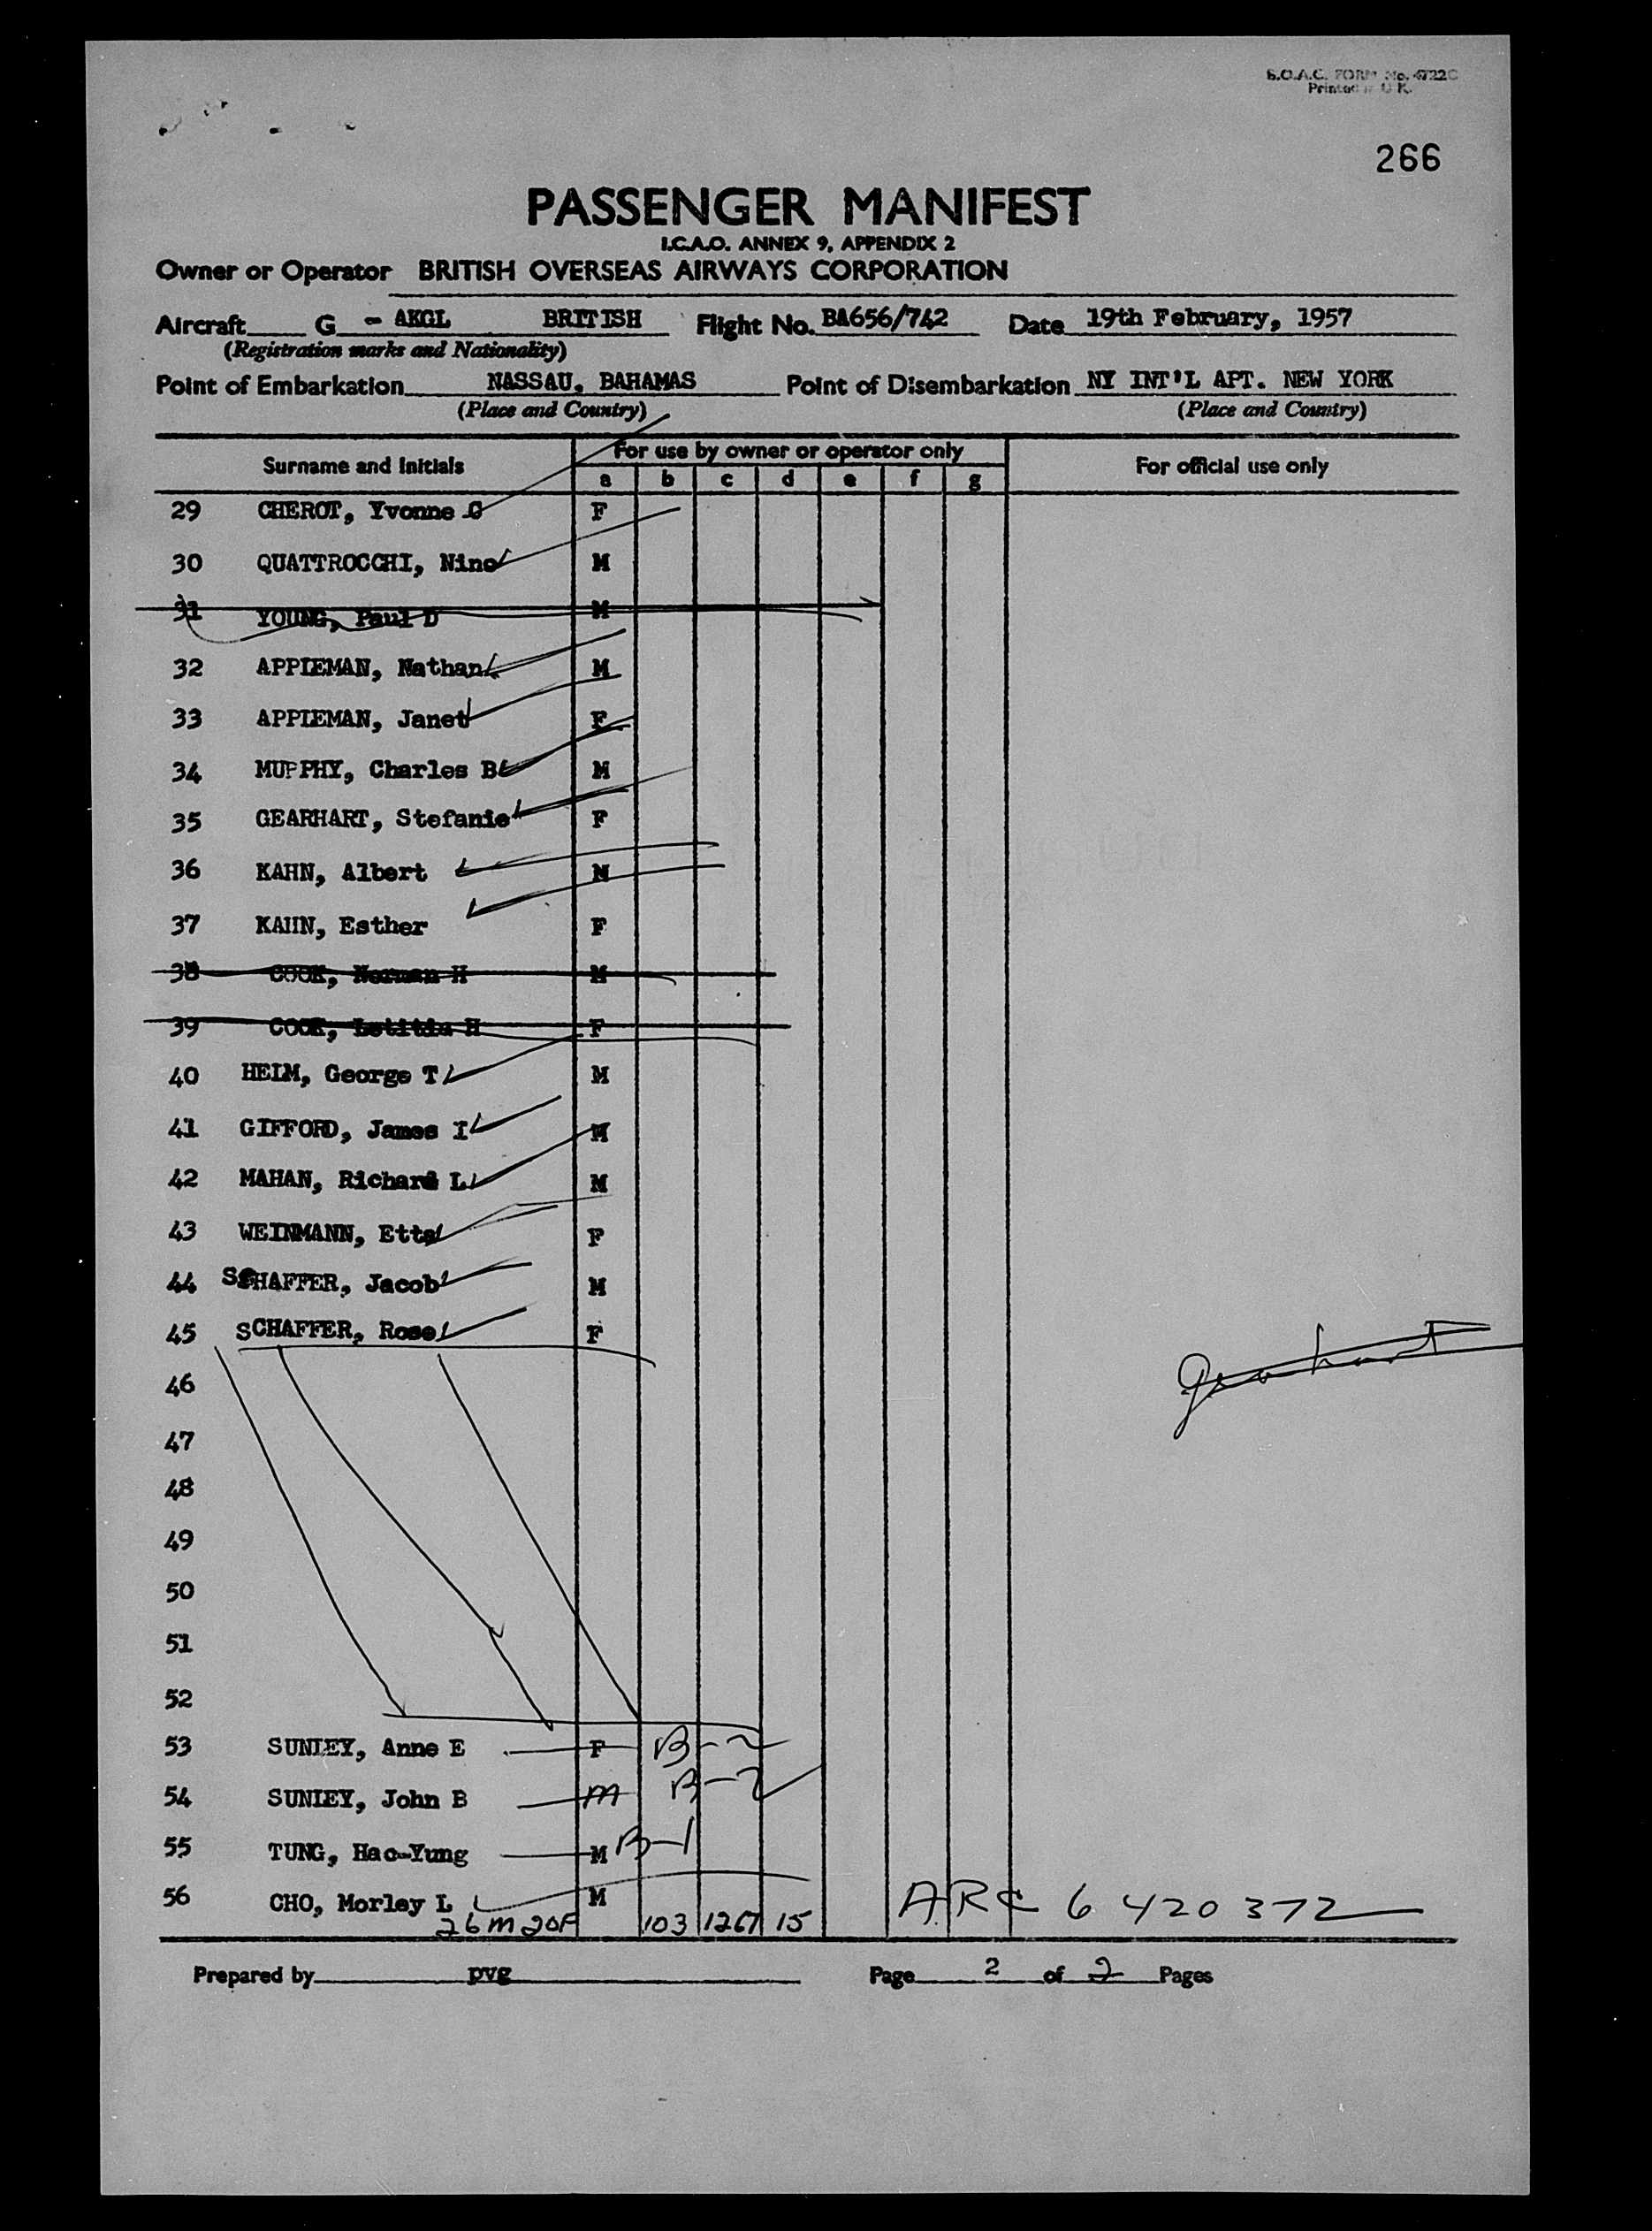 B.O.A.C. FORM No. 4722C
Printed in U.K.
266
PASSENGER MANIFEST
I.C.A.O. ANNEX 9, APPENDIX 2
Owner or Operator BRITISH OVERSEAS AIRWAYS CORPORATION
Aircraft G - AKGL BRITISH Flight No. BA656/742 Date 19th February, 1957
(Registration marks and Nationality)
Point of Embarkation NASSAU, BAHAMAS Point of Disembarkation NY INT'L APT. NEW YORK
(Place and Country) (Place and Country)
Surname and Initials For use by owner or operator only For official use only
a b c d e f g
29 CHEROT, Yvonne G F
30 QUATTROCCHI, Nino M
31 YOUNG, Paul D M
32 APPLEMAN, Nathan M
33 APPLEMAN, Janet F
34 MURPHY, Charles B M
35 GEARHART, Stefanie F
36 KAHN, Albert M
37 KAHN, Esther F
38 COOK, Norman H M
39 COOK, Letitia H F
40 HEIM, George T M
41 GIFFORD, James I M
42 MAHAN, Richard L M
43 WEINMANN, Etta F
44 SCHAFFER, Jacob M
45 SCHAFFER, Rose F
Gearhart
46
47
48
49
50
51
52
53 SUNLEY, Anne E F B-2
54 SUNLEY, John B M B-2
55 TUNG, Hao-Yung M B-1
56 CHO, Morley L M ARC 6 420 372
26M 20F 103 1267 15
Prepared by pvg Page 2 of 2 Pages